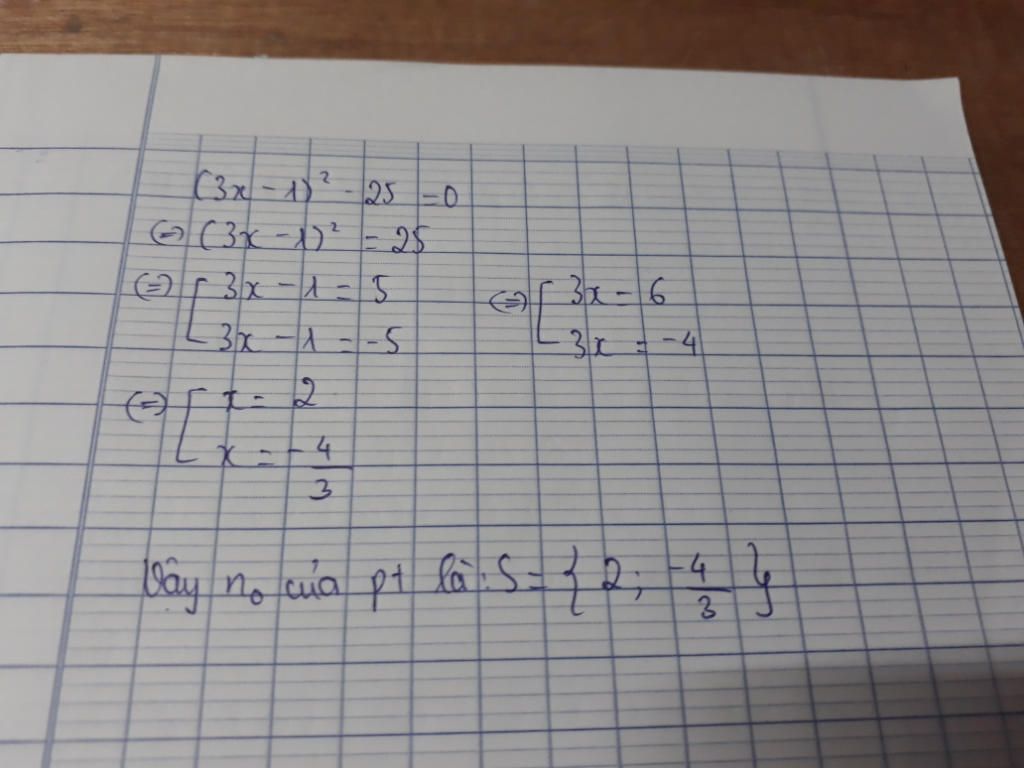 (3x - 1)² - 25 = 0
(=) (3x - 1)² = 25
(=) [ 3x - 1 = 5 (=) [ 3x = 6
3x - 1 = -5 3x = -4
(=) [ x = 2
x = -4/3
Vậy n₀ của pt là: S = { 2; -4/3 }